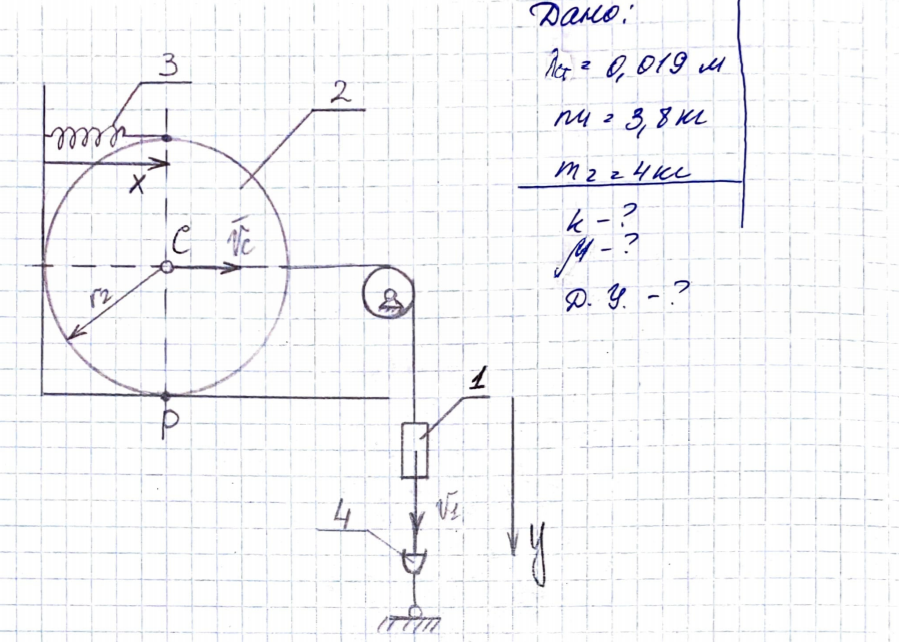 Дано:
λст = 0,019 м
m1 = 3,8 кг
m2 = 4 кг
k - ?
M - ?
Д. У. - ?
3
2
x
C
V̄c
r2
P
1
4
V̄1
y